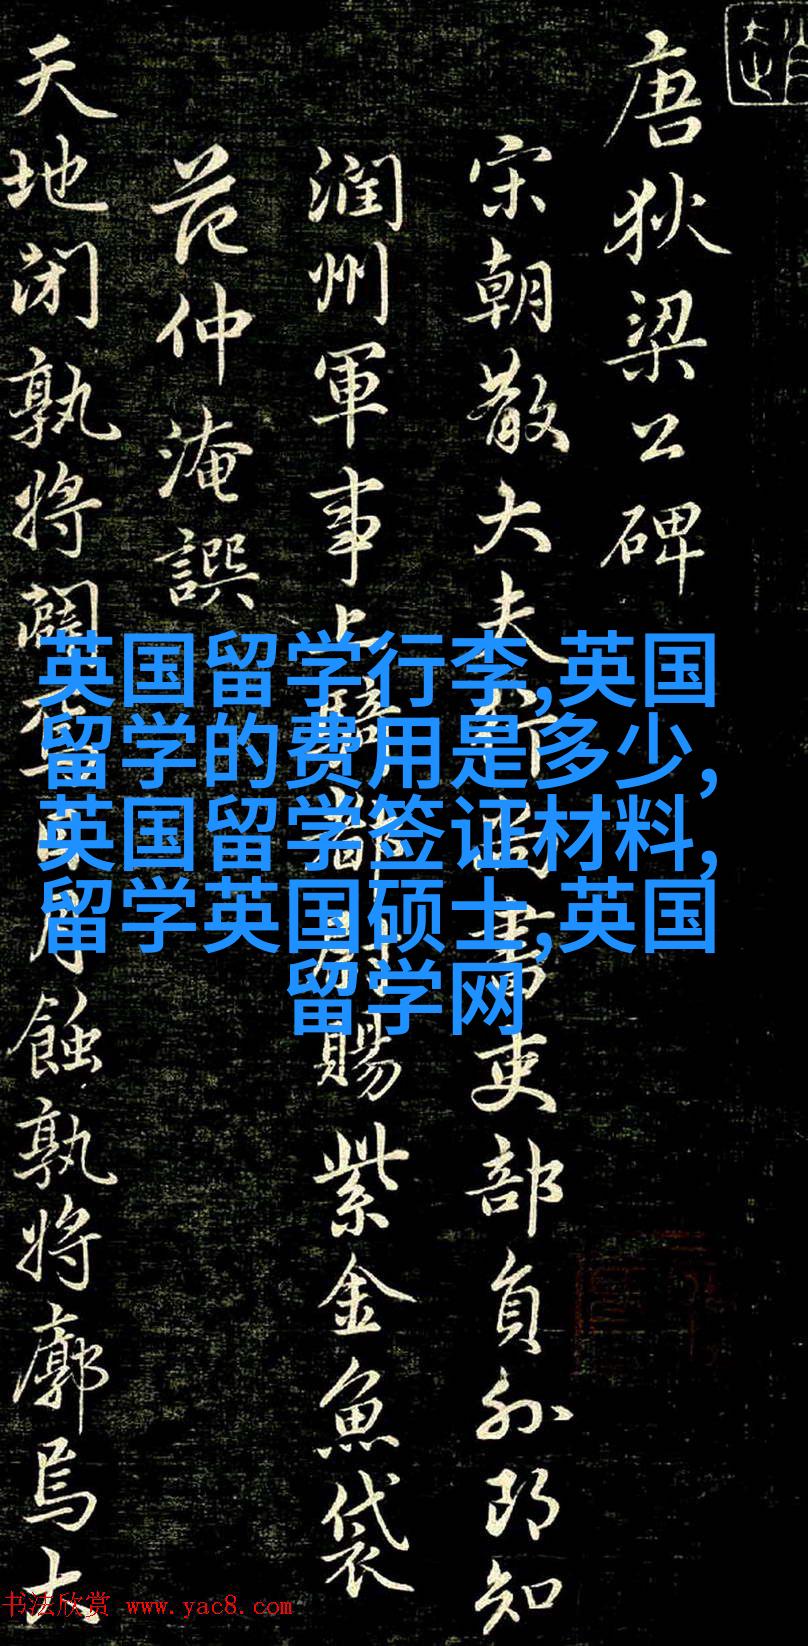 唐狄梁公碑
宋朝散大夫行尚書吏部員外郎知
潤州軍事上騎都尉賜紫金魚袋
范仲淹譔
天地閉孰將闢焉日月蝕孰將廓焉大
英国留学行李,英国
留学的费用是多少,
英国留学签证材料,
留学英国硕士,英国
留学网
书法欣赏 www.yac8.com